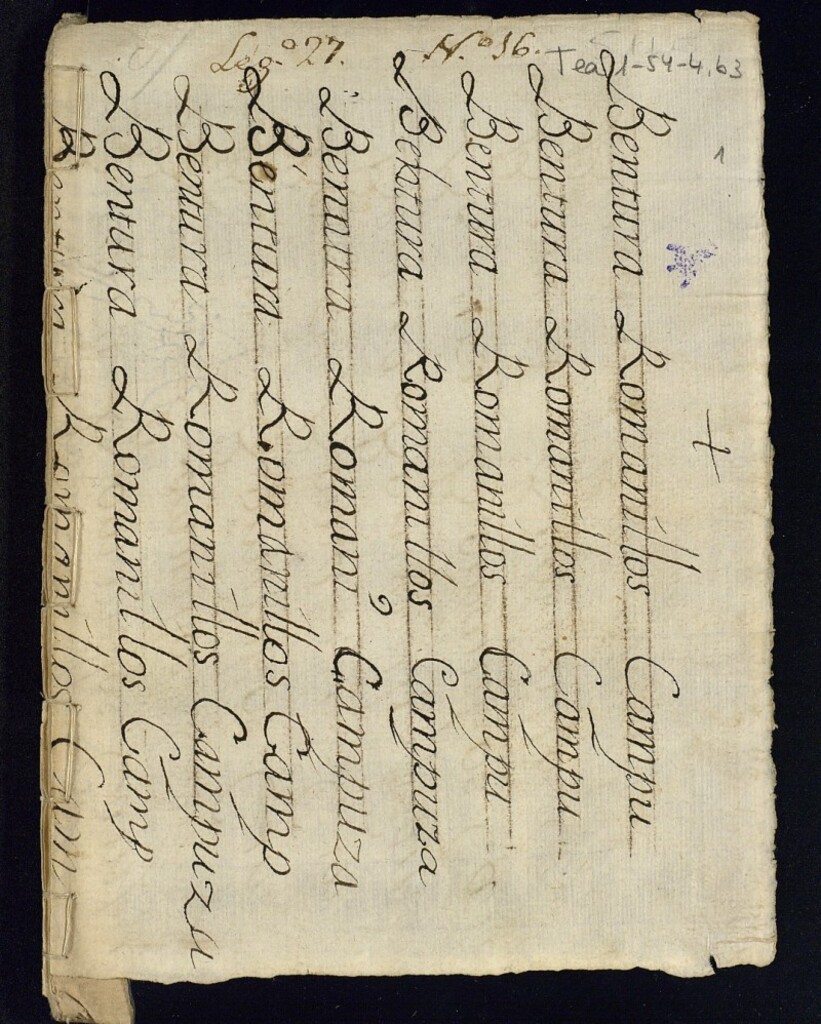 Leg.º 27. N.º 16.
Tea 1-54-4, b3
1
+
Bentura Romanillos Campu
Bentura Romanillos Campu
Bentura Romanillos Campu
Bentura Romanillos Campuza
Bentura Romani Campuza
Bentura Romanillos Camp
Bentura Romanillos Campuza
Bentura Romanillos Camp
Bentura Romanillos Cam